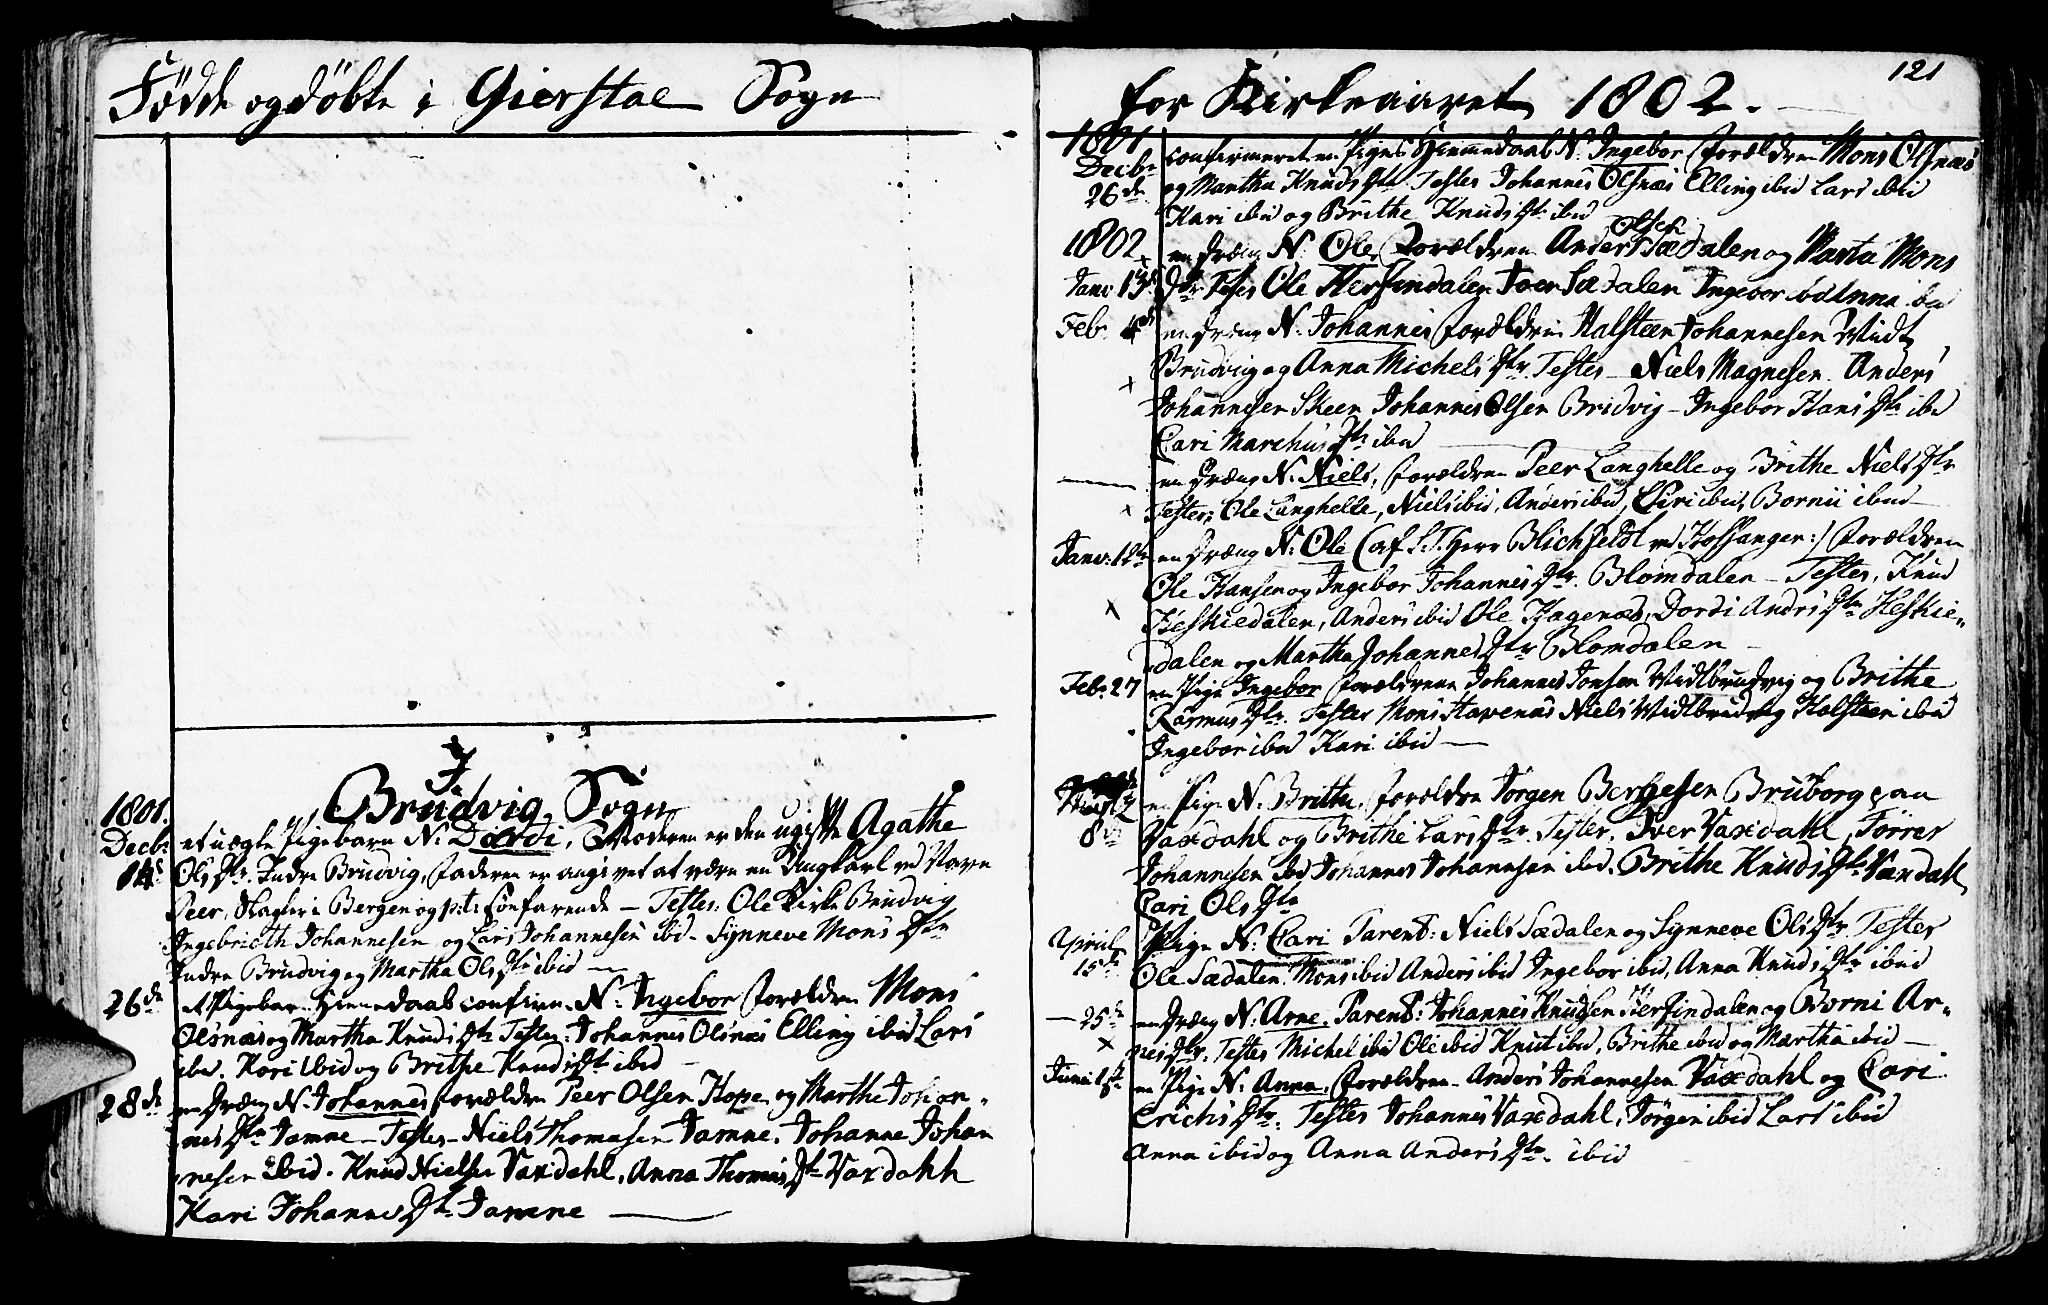 Födde og döbte i Gierstae Sogn
I
Brudvig Sogn
1801.
Decbr et uægte Pigebarn N. Dordi, Moderen er den ugifte Agathe
14de Ols Dtr. Indre Brudvig, faderen er angivet at være en Ungkarl ved Navn
Peer, Slagter i Bergen og p:t: Sönfarende — Testes: Ole Kirke Brudvig
Ingebricth Johannesen og Lars Johannesen ibd. Synneve Mons Dtr
Indre Brudvig og Martha Ols Dtr ibid —
26de et Pigebarn Hiemmedaab confirm. N. Ingebor forældre Mons
Olsnæs og Martha Knuds Dtr Testes: Johannes Olsnæs Elling ibid Lars
ibid. Kari ibid og Brithe Knuds Dtr ibid —
28de en dreng N. Johannes forældre Peer Olsen Hope og Marthe Johan-
nes Dtr Jamne — Testes — Niels Thomasen Jamne. Johanne Johan
nesen ibid. Knud Nielsen Vaxdahl, Anna Thomas Dtr Vaxdahl
Kari Johannes Dtr Jamne —
for Kirkeaaret 1802.
121
1801
Decbr confirmeret en Piges Hiemmedaab N. Ingebor forældren Mons Olsnæs
26de og Martha Knuds Dtr. Testes Johannes Olsnæs Elling ibid Lars ibid
Kari ibid og Brithe Knuds Dtr ibid
1802 en dreng N. Ole forældrene Anders Olsen Sædalen og Marta Mons
Janv 13de Dtr Testes Ole Herfindalen Iver Sædalen Ingebor ibd Anna ibd
Feb. 4de en dreng N. Johannes forældre Halsteen Johannesen Vidt
Brudvig og Anna Michels Dtr. Testes — Niels Magnesen. Anders
Johannesen Skeen Johannes Olsen Bridvig — Ingebor Hans Dtr ibd
Cari Marchus Dtr ibd
— en dreng N. Niels, forældren Peer Langhelle og Brithe Niels Dtr
Testes: Ole Langhelle, Niels ibid, Anders ibid, Siri ibid, Bornii ibid —
Janv: 12te en dreng N: Ole (af S.T. Herr Blichfeldt ved Hossanger:) forældren
Ole Hansen og Ingebor Johannes Dtr. Blomdalen — Testes, Knud
Heskiedalen, Anders ibid Ole Hagenæs, Dordi Anders Dtr Heskie-
dalen og Martha Johannes Dtr Blomdalen —
Feb: 27 en Pige Ingebor forældrene Johannes Jonsen Vidlbrudvig og Brithe
Rasmus Dtr. Testes Mons Stavenæs Niels Vidlbrudvig Halsteen ibid
Ingebor ibid Kari ibid —
8de en Pige N. Brithe, forældre Jörgen Bergesen Bruborg paa
Vaxdahl og Brithe Lars Dtr. Testes. Iver Vaxdahl, Törres
Johannesen ibd Johannes Johannesen ibd. Brithe Knuds Dtr Vaxdahl
Cari Ols Dtr
April 15de Pige N: Cari Parent: Niels Sædalen og Synneve Ols Dtr Testes
Ole Sædalen Mons ibid Anders ibid Ingebor ibid, Anna Knuds Dtr ibid
— 25de en dreng N: Arne. Parent: Johannes Knudsen Herfindalen og Borni Ar-
nes Dtr. Testes Michel ibid Ole ibid Knut ibd, Brithe ibid og Martha ibid —
Junii en Pige N: Anna, forældren — Anders Johannesen Vaxdahl og Cari
Erichs Dtr. Testes Johannes Vaxdahl, Jörgen ibid Lars ibid
Anna ibid og Anna Anders Dtr. ibid